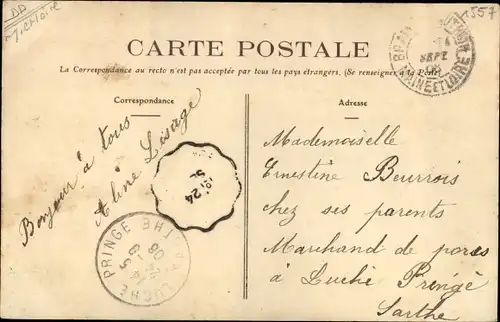 1557
CARTE POSTALE
La Correspondance au recto n'est pas acceptée par tous les pays étrangers. (Se renseigner à la Poste)
Correspondance
Adresse
Bonjour à tous
Aline Lesage
Mademoiselle
Ernestine Beurrois
chez ses parents
Marchand de porcs
à Luché Pringé
Sarthe
SEPT
MAINE ET LOIRE
24
LUCHE PRINGE
SARTHE
08